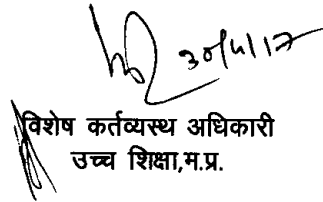 30/4/17
विशेष कर्तव्यस्थ अधिकारी
उच्च शिक्षा,म.प्र.